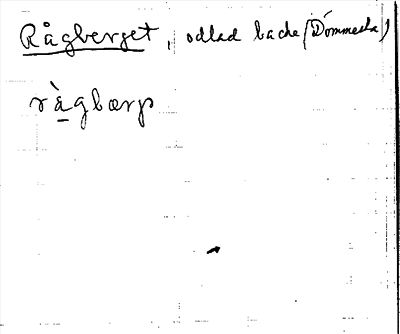 Rågberget, odlad backe (Dömmesta)
rå̀gbærjs